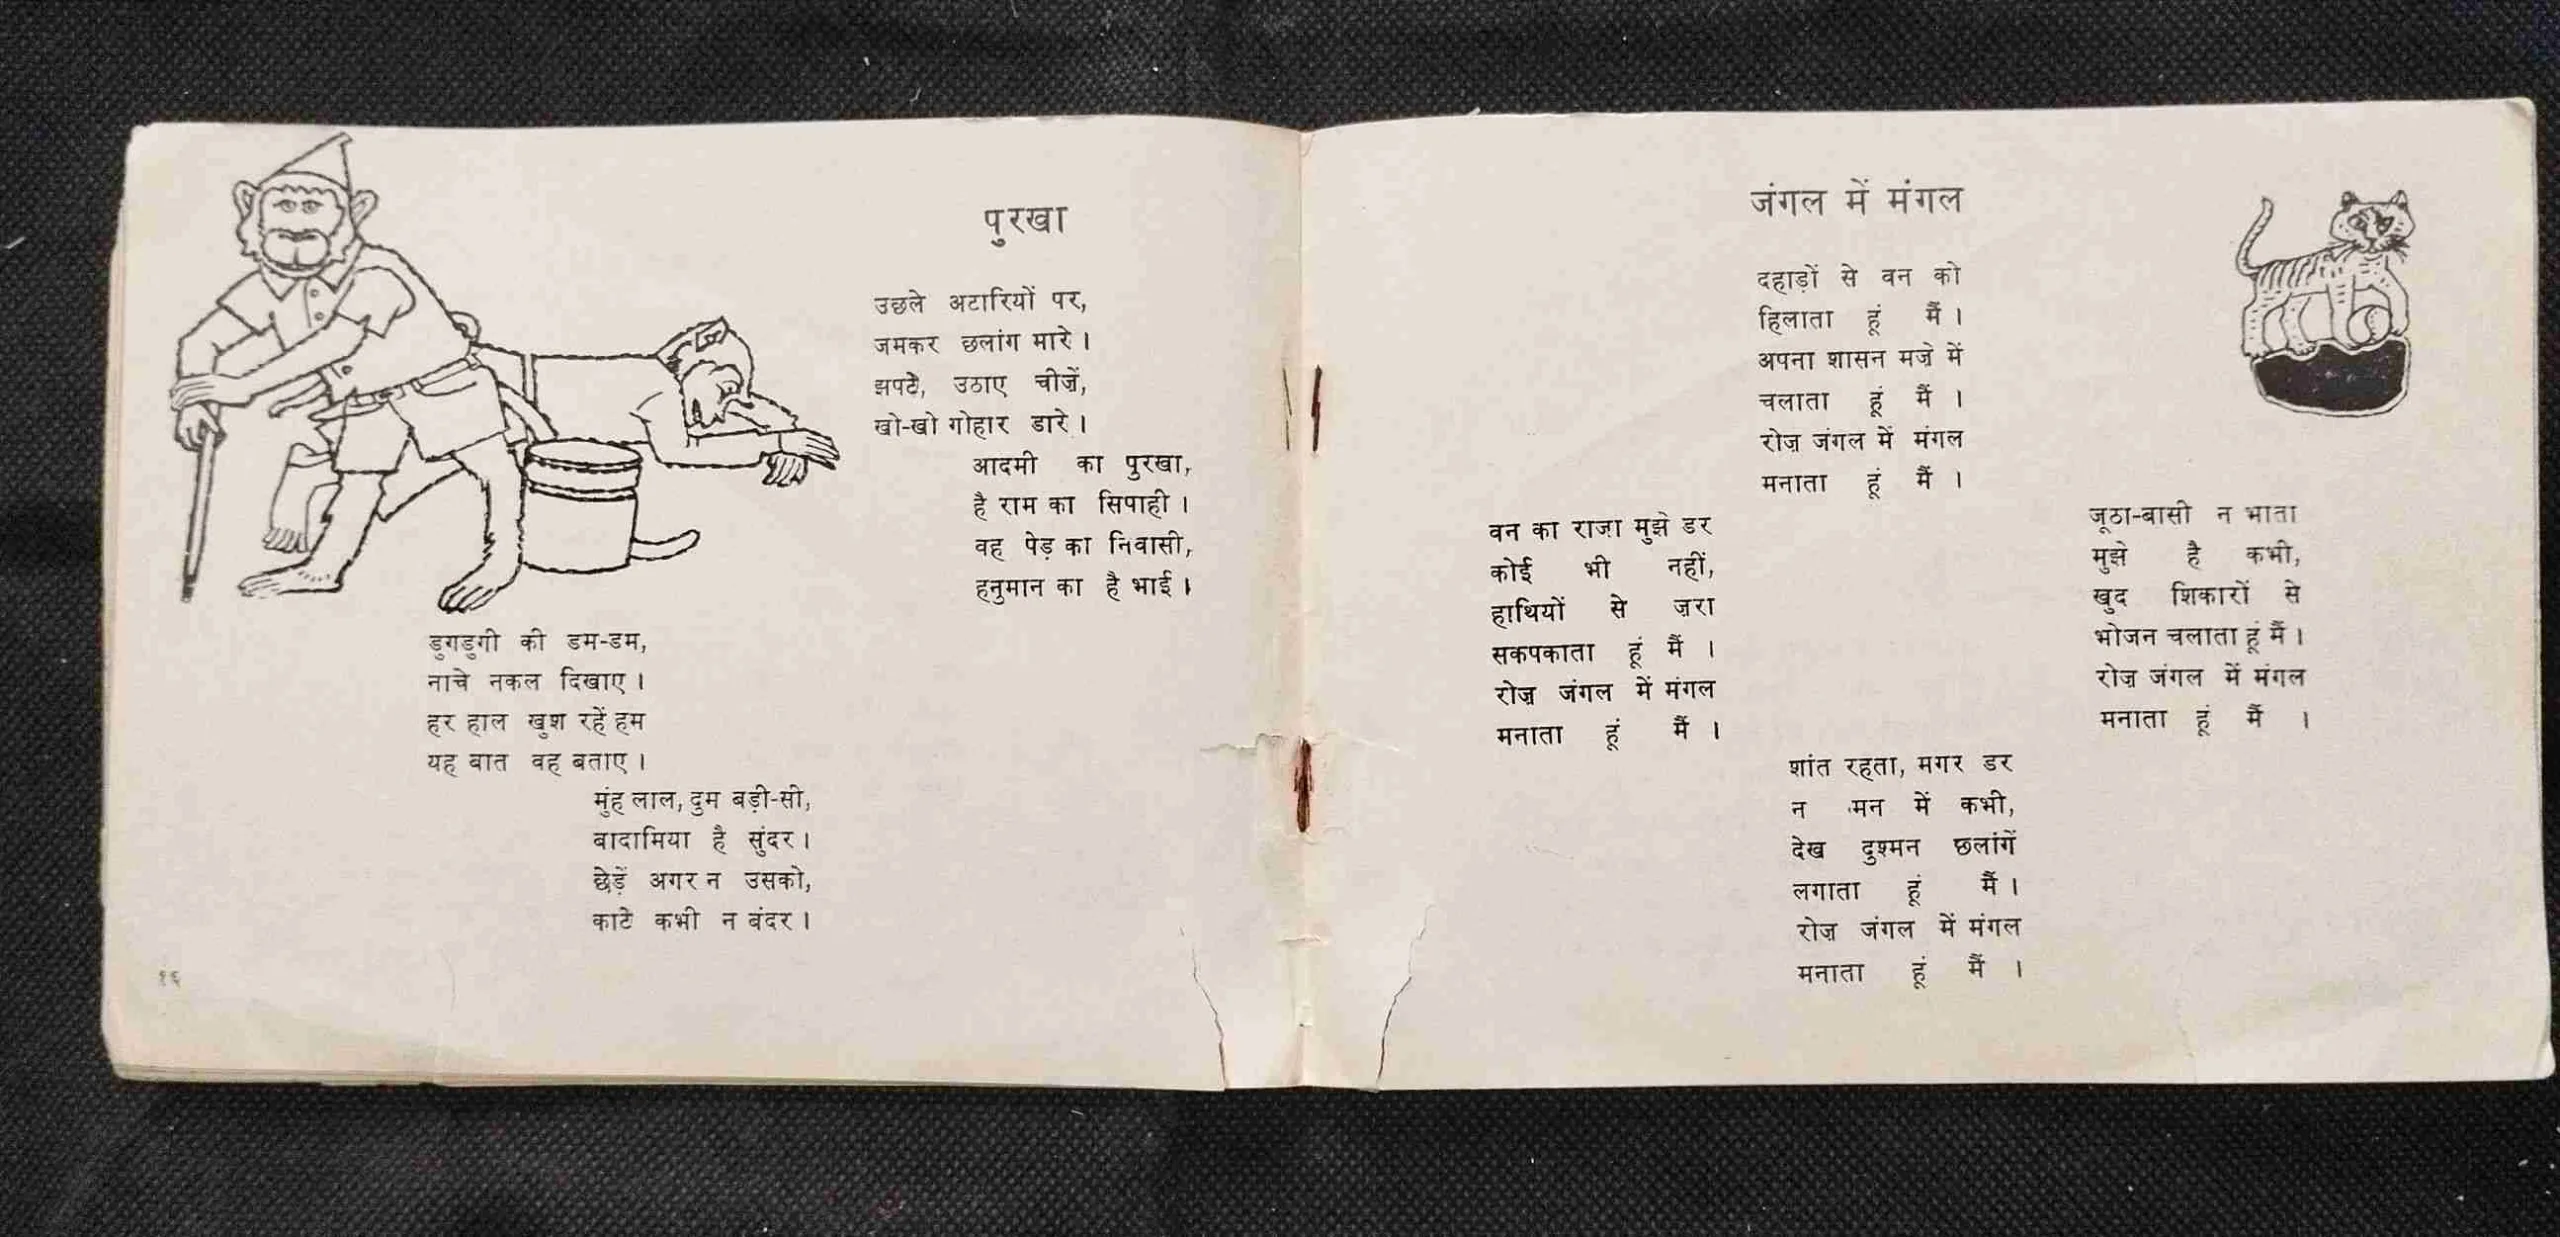 पुरखा
उछले अटारियों पर,
जमकर छलांग मारे।
झपटे, उठाए चीजें,
खो-खो गोहार डारे।
आदमी का पुरखा,
है राम का सिपाही।
वह पेड़ का निवासी,
हनुमान का है भाई।
डुगडुगी की डम-डम,
नाचे नकल दिखाए।
हर हाल खुश रहें हम
यह बात वह बताए।
मुंह लाल, दुम बड़ी-सी,
बादामिया है सुंदर।
छेड़ें अगर न उसको,
काटे कभी न बंदर।
१६
जंगल में मंगल
दहाड़ों से वन को
हिलाता हूं मैं।
अपना शासन मज़े में
चलाता हूं मैं।
रोज़ जंगल में मंगल
मनाता हूं मैं।
वन का राजा मुझे डर
कोई भी नहीं,
हाथियों से ज़रा
सकपकाता हूं मैं।
रोज़ जंगल में मंगल
मनाता हूं मैं।
जूठा-बासी न भाता
मुझे है कभी,
खुद शिकारों से
भोजन चलाता हूं मैं।
रोज़ जंगल में मंगल
मनाता हूं मैं।
शांत रहता, मगर डर
न मन में कभी,
देख दुश्मन छलांगें
लगाता हूं मैं।
रोज़ जंगल में मंगल
मनाता हूं मैं।